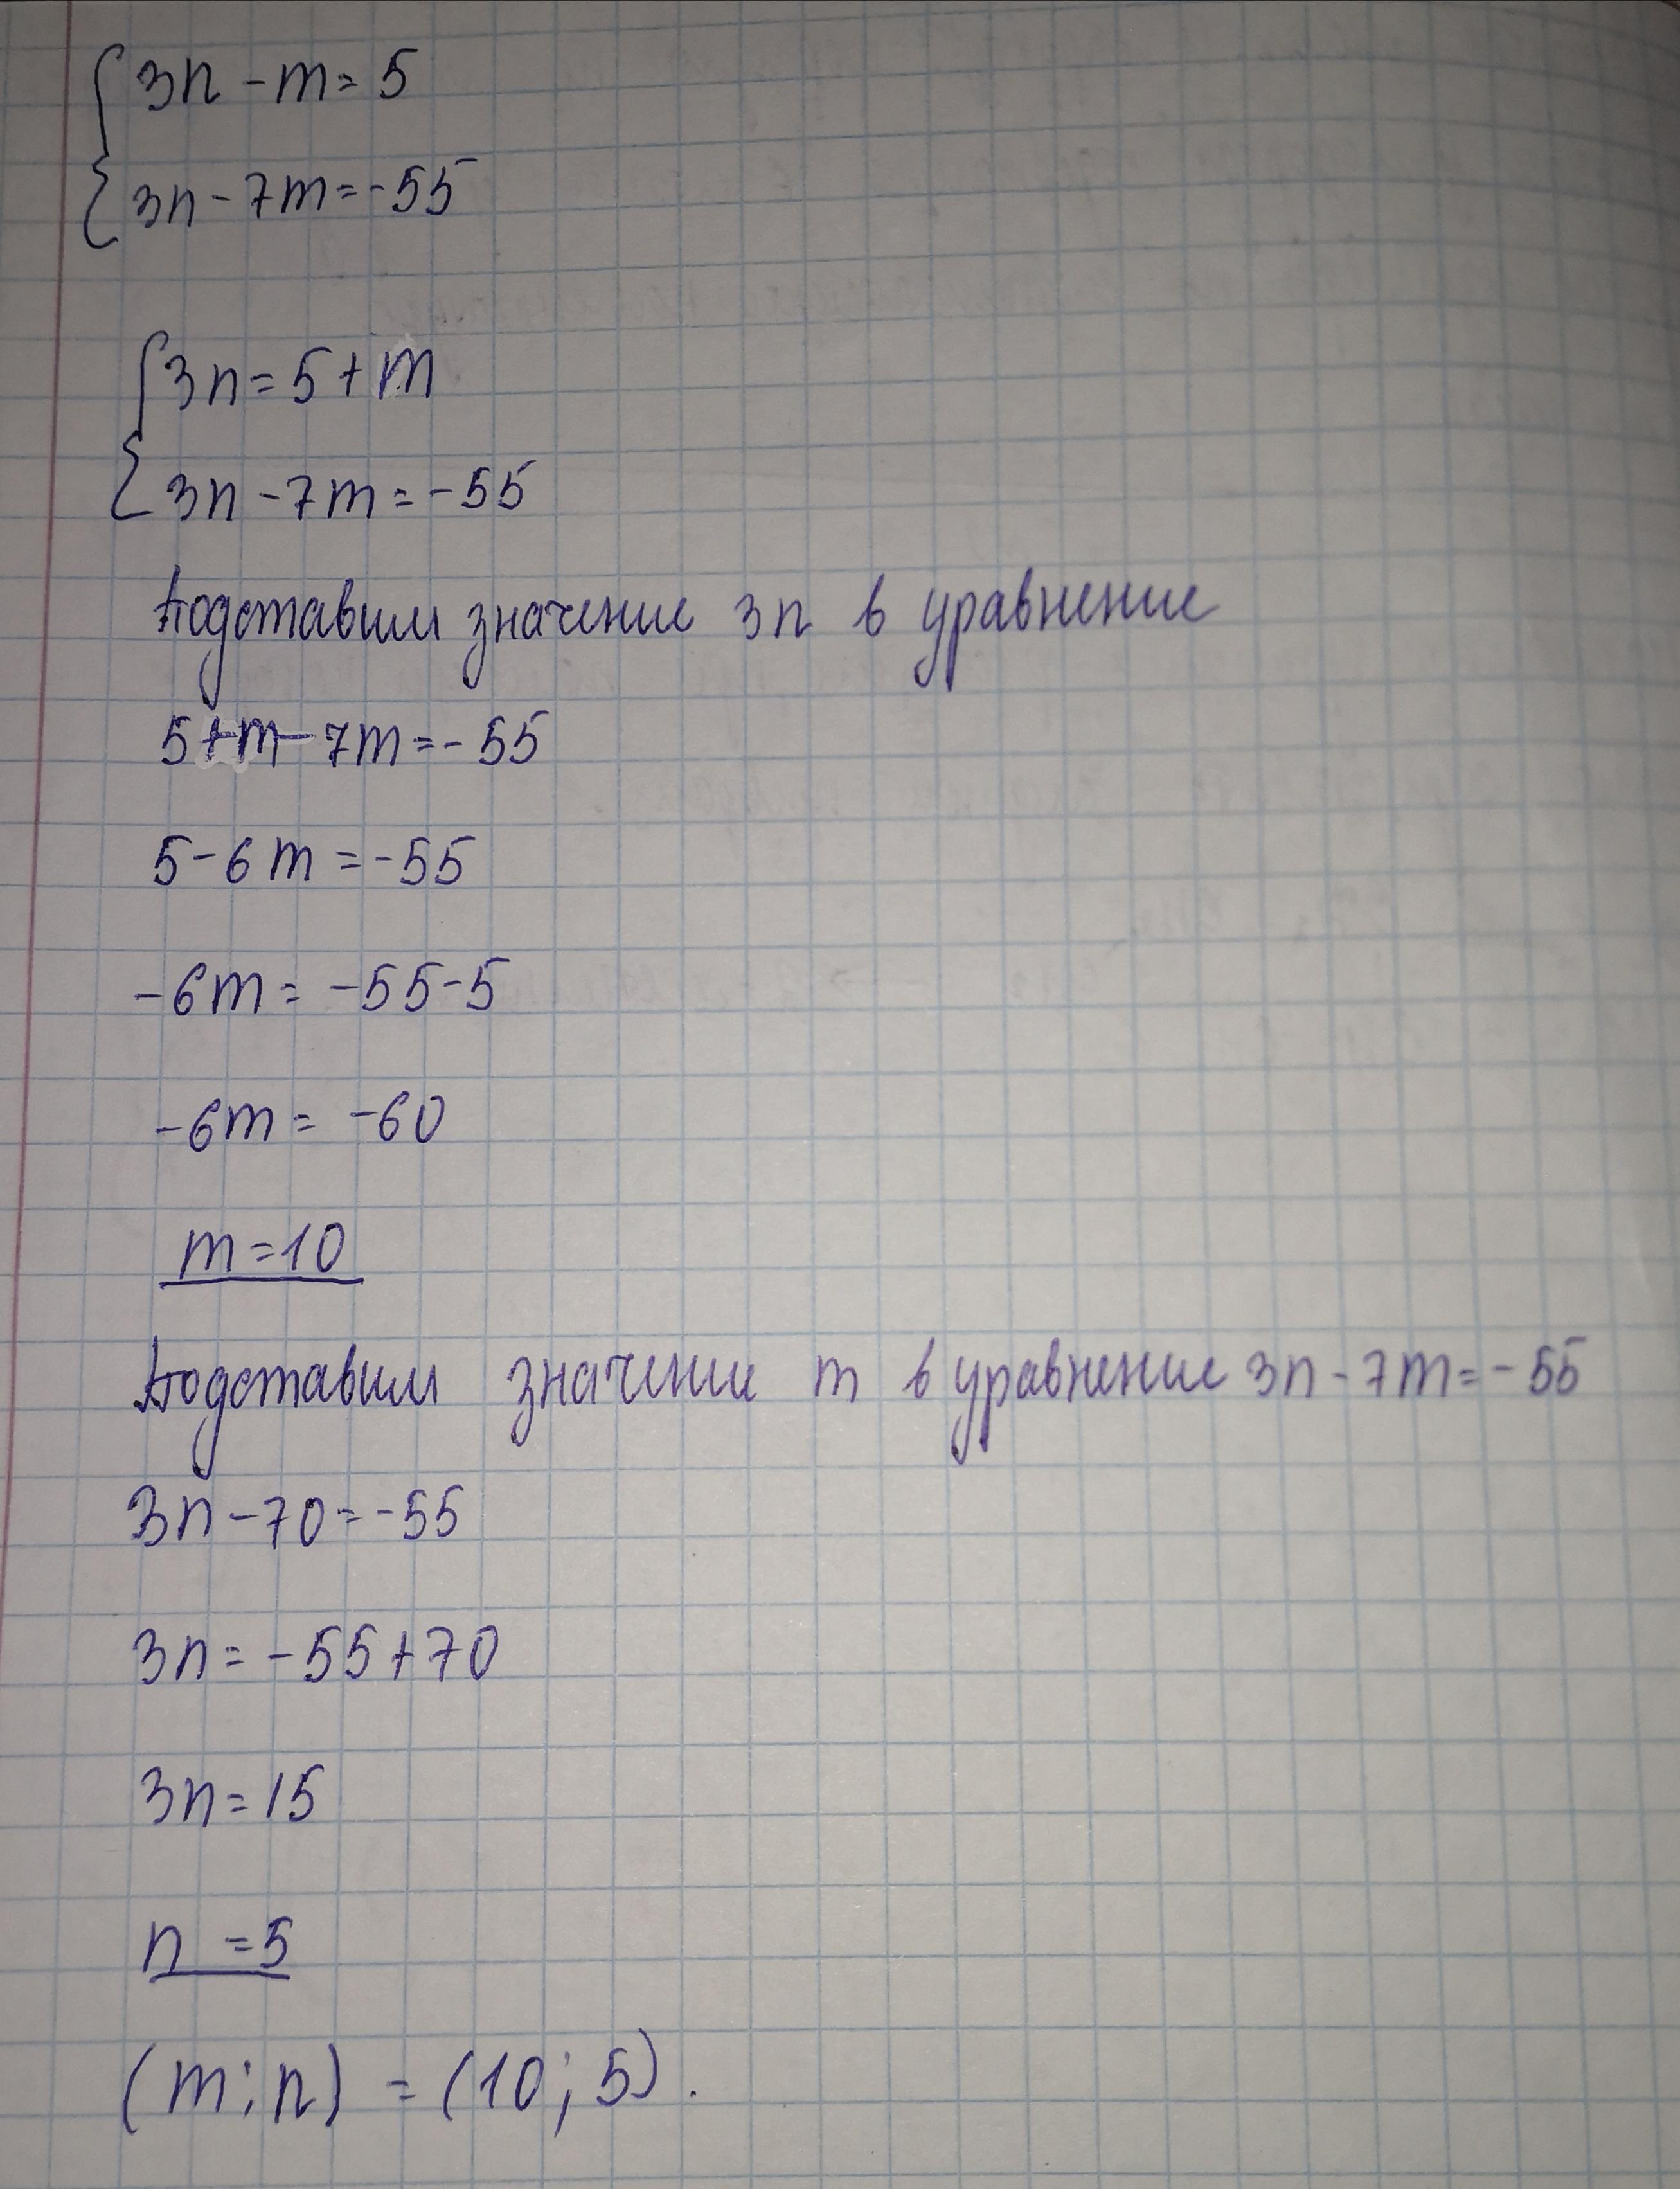 3n - m = 5
3n - 7m = -55
3n = 5 + m
3n - 7m = -55
Подставим значение 3n в уравнение
5 + m - 7m = -55
5 - 6m = -55
-6m = -55 - 5
-6m = -60
m = 10
Подставим значение m в уравнение 3n - 7m = -55
3n - 70 = -55
3n = -55 + 70
3n = 15
n = 5
(m; n) = (10; 5).